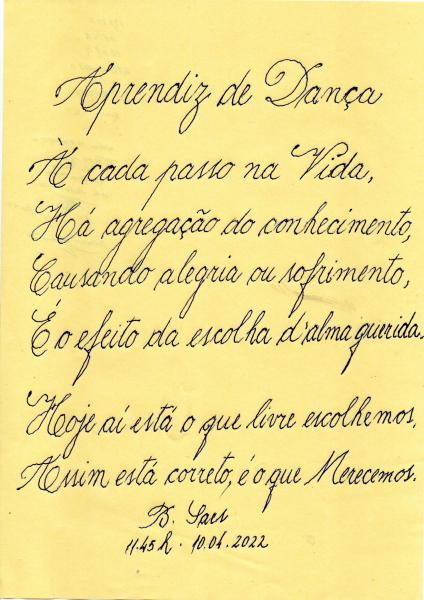 Aprendiz de Dança
À cada passo na Vida,
Há agregação do conhecimento,
Causando alegria ou sofrimento,
É o efeito da escolha d'alma querida.
Hoje aí está o que livre escolhemos,
Assim está correto, é o que Merecemos.
B. Saes
11.45 h. 10.04.2022